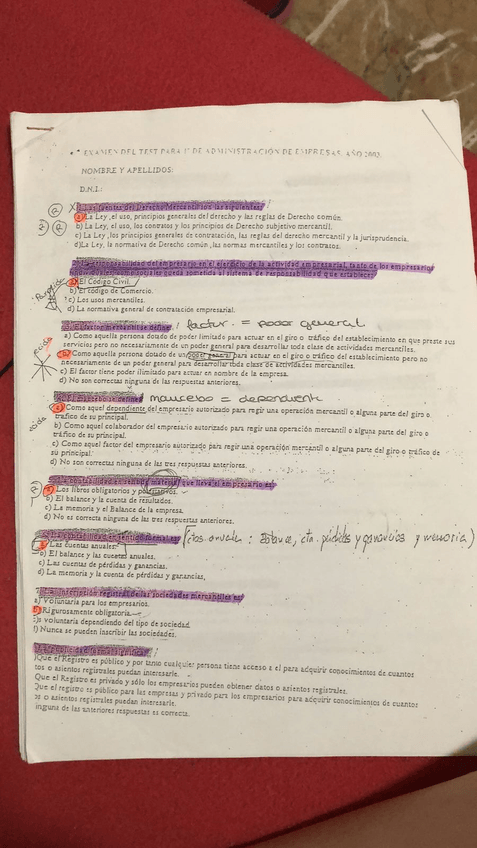 EXAMEN DEL TEST PARA 1º DE ADMINISTRACIÓN DE EMPRESAS. AÑO 2002
NOMBRE Y APELLIDOS:
D.N.I.:
fuentes del Derecho Mercantil son las siguientes:
a) La Ley, el uso, principios generales del derecho y las reglas de Derecho común.
b) La Ley, el uso, los contratos y los principios de Derecho subjetivo mercantil.
c) La Ley, los principios generales de contratación, las reglas del derecho mercantil y la jurisprudencia.
d) La Ley, la normativa de Derecho común, las normas mercantiles y los contratos.
responsabilidad del empresario en el ejercicio de la actividad empresarial, tanto de los empresarios
queda sometida al sistema de responsabilidad que establece:
a) El Código Civil.
b) El código de Comercio.
c) Los usos mercantiles.
d) La normativa general de contratación empresarial.
El factor mercantil se define: factor = poder general
a) Como aquella persona dotado de poder limitado para actuar en el giro o tráfico del establecimiento en que preste sus
servicios pero no necesariamente de un poder general para desarrollar toda clase de actividades mercantiles.
b) Como aquella persona dotado de un poder general para actuar en el giro o tráfico del establecimiento pero no
necesariamente de un poder general para desarrollar toda clase de actividades mercantiles.
c) El factor tiene poder ilimitado para actuar en nombre de la empresa.
d) No son correctas ninguna de las respuestas anteriores.
El mancebo se define: mancebo = dependiente
a) Como aquel dependiente del empresario autorizado para regir una operación mercantil o alguna parte del giro o
tráfico de su principal.
b) Como aquel colaborador del empresario autorizado para regir una operación mercantil o alguna parte del giro o
tráfico de su principal.
c) Como aquel factor del empresario autorizado para regir una operación mercantil o alguna parte del giro o tráfico de
su principal.
d) No son correctas ninguna de las tres respuestas anteriores.
La contabilidad en sentido material que lleva el empresario es:
a) Los libros obligatorios y potestativos.
b) El balance y la cuenta de resultados.
c) La memoria y el Balance de la empresa.
d) No es correcta ninguna de las tres respuestas anteriores.
La contabilidad en sentido formal es: ctas. anuales: Balance, cta. pérdidas y ganancias y memoria)
a) Las cuentas anuales.
b) El balance y las cuentas anuales.
c) Las cuentas de pérdidas y ganancias.
d) La memoria y la cuenta de pérdidas y ganancias,
La inscripción registral de las sociedades mercantiles es:
a) Voluntaria para los empresarios.
Rigurosamente obligatoria.
voluntaria dependiendo del tipo de sociedad
Nunca se pueden inscribir las sociedades.
La publicidad formal significa:
Que el Registro es público y por tanto cualquier persona tiene acceso a el para adquirir conocimientos de cuantos
tos o asientos registrales puedan interesarle.
Que el Registro es privado y sólo los empresarios pueden obtener datos o asientos registrales.
Que el registro es público para las empresas y privado para los empresarios para adquirir conocimientos de cuantos
os o asientos registrales puedan interesarle.
inguna de las anteriores respuestas es correcta.